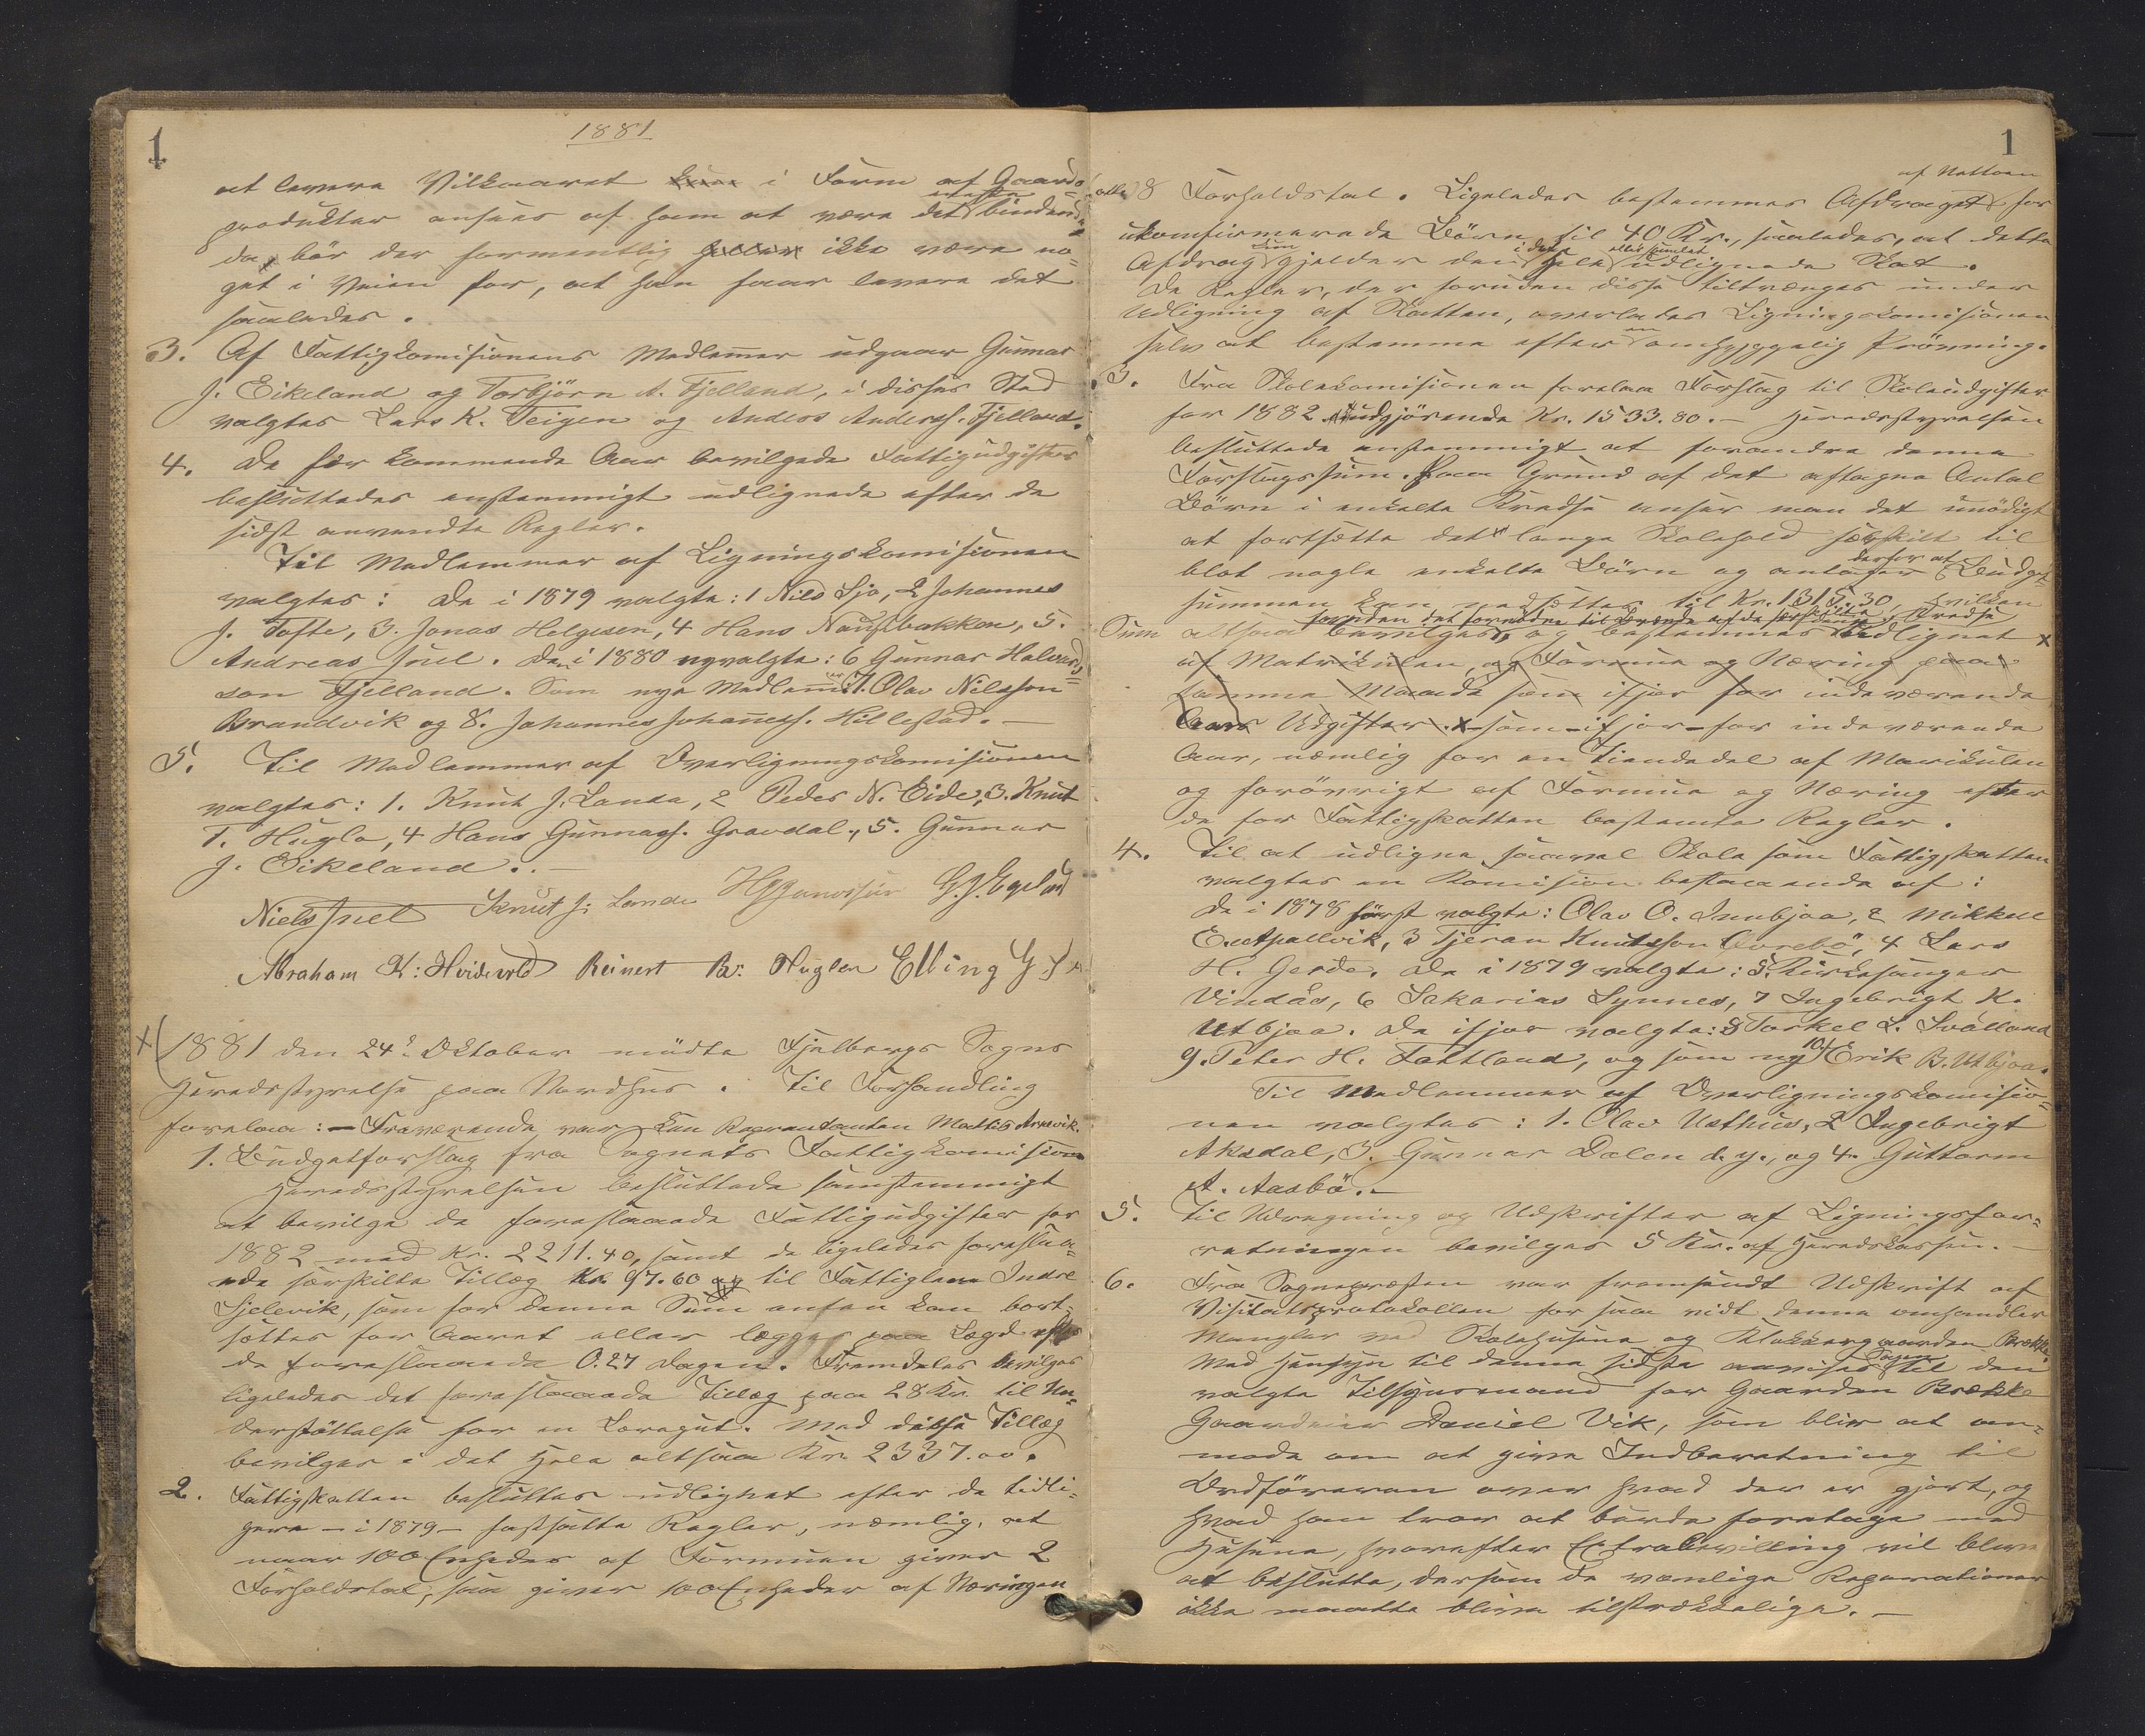 1
1881
at levere Vilkaaret i Form af Gaards-
produkter ansees af ham at være det bindende
da bör der formentlig ikke være no-
get i Veien for, at han faar levere det
saaledes.
3. Af Fattigkomisionens Medlemer udgaar Gunnar
J. Eikeland og Torbjörn A. Fjelland, i disses Sted
valgtes Lars K. Teigen og Anders Anderss. Fjelland.
4. De for kommende Aar bevilgede Fattigudgifter
besluttedes enstemmigt udlignede efter de
sidst anvendte Regler.
Til Medlemmer af Ligningskomisionen
valgtes: De i 1879 valgte: 1 Nils Sjo, 2 Johannes
J. Tofte, 3. Jonas Helgesen, 4 Hans Naustbakken, 5.
Andreas Juel. De i 1880 nyvalgte: 6 Gunnar Halvards-
son Fjelland. Som nye Medlemer: 7. Olav Nilsson
Brandvik og 8. Johannes Johanness. Hillestad. —
5. Til Medlemmer af Overligningskomisionen
valgtes: 1. Knut J. Landa, 2 Peder N. Eide, 3. Knut
T. Hugla, 4 Hans Gunnars. Gravdal, 5. Gunnar
J. Eikeland. —
Niels Juel Knut J. Landa G. J. Egeland
Abraham K: Hvidevold Reinert Huglen Elling G.
1881 den 24de Oktober mödte Fjelbergs Sogns
Heredsstyrelse paa Nordhus. Til Forhandling
forelaa: — Fraværende var kun Repræsentanten Mattis Arnevik.
1. Budgetforslag fra Sognets Fattigkomision
Heredsstyrelsen besluttede samstemmigt
at bevilge de foreslaaede Fattigudgifter for
1882 med Kr. 2211.40, samt de ligeledes foreslaa-
ede særskilte Tillæg Kr. 97.60 til Fattiglem Indre
Sjelevik, som for denne Sum enten kan bort-
sættes for Aaret eller lægges paa Lægd efter
de foreslaaede 0.27 Dagen. Fremdeles bevilges
ligeledes det foreslaaede Tillæg paa 28 Kr. til Un-
derstöttelse for en Læregut. Med disse Tillæg
bevilges i det Hele altsaa Kr. 2337.00.
2. Fattigskatten besluttes udlignet efter de tidli-
gere — i 1879 — fastsatte Regler, nemlig, at
naar 100 Enheder af Formuen giver 2
Forholdstal, saa giver 100 Enheder af Næringen
1
8 Forholdstal. Ligeledes bestemmes Afdraget af Nettoen for
ukonfirmerede Börn til 40 Kr., saaledes, at dette
Afdrag kun gjelder den i det Hele eller samlet udlignede Skat.
De Regler, der foruden disse tiltrænges under
Udligning af Skatten, overlades Ligningskomisionen
selv at bestemme efter en omhyggelig Prövning.
3. Fra Skolekomisionen forelaa Forslag til Skoleudgifter
for 1882 udgjörende Kr. 1533.80. — Heredsstyrelsen
besluttede enstemmigt at forandre denne
Forslagssum. Paa Grund af det aftagne Antal
Börn i enkelte Kredse anser man det unödigt
at fortsætte det lange Skolehold særskilt til
blot nogle enkelte Börn og antager derfor at Budget-
summen kan nedsættes til Kr. 1315.30, hvilken
foruden det fornödne tilværende af de særskilte Kredse
Sum altsaa bevilges, og bestemmes udlignet x
af Matrikulen og Formue og Næring paa
samme Maade som ifjor for indeværende
Aars Udgifter. x som — ifjor — for indeværende
Aar, nemlig for en Tiendedel af Marikulen
og forövrigt af Formue og Næring efter
de for Fattigskatten bestemte Regler.
4. Til at udligne saavel Skole som Fattigskatten
valgtes en Komision bestaaende af:
De i 1878 först valgte: Olav O. Innbjoa, 2 Mikkel
E. Apallvik, 3 Tjeran Knutsson Övrebö, 4 Lars
H. Gerde. De i 1879 valgte: 5. Kirkesanger
Vindås, 6 Sakarias Synnes, 7 Ingebrigt K.
Utbjoa. De ifjor valgte: 8 Torkel L. Svålland
9. Peter H. Fattland, og som ny 10. Erik B. Utbjoa.
Til Medlemmer af Overligningskomisio-
nen valgtes: 1. Olav Vesthus, 2 Ingebrigt
Aksdal, 3. Gunnar Dalen d. y., og 4. Guttorm
A. Aasbö. —
5. Til Udregning og Udskrifter af Ligningsfor-
retningen bevilges 5 Kr. af Heredskassen. —
6. Fra Sognepræsten var fremsendt Udskrift af
Visitatsprotokollen for saa vidt denne omhandler
Mangler ved Skolehusene og Klokkergaarden Brække.
Med Hensyn til denne sidste anvises Sagen til den
valgte Tilsynsmand for Gaarden Brække
Gaardeier Daniel Vik, som blir at an-
mode om at give Indberetning til
Ordföreren over hvad der er gjort, og
hvad han tror at burde foretages med
Husene, hvorefter Extrabevilling vil blive
at beslutte, dersom de vanlige Reparationer
ikke maatte blive tilstrækkelige. —